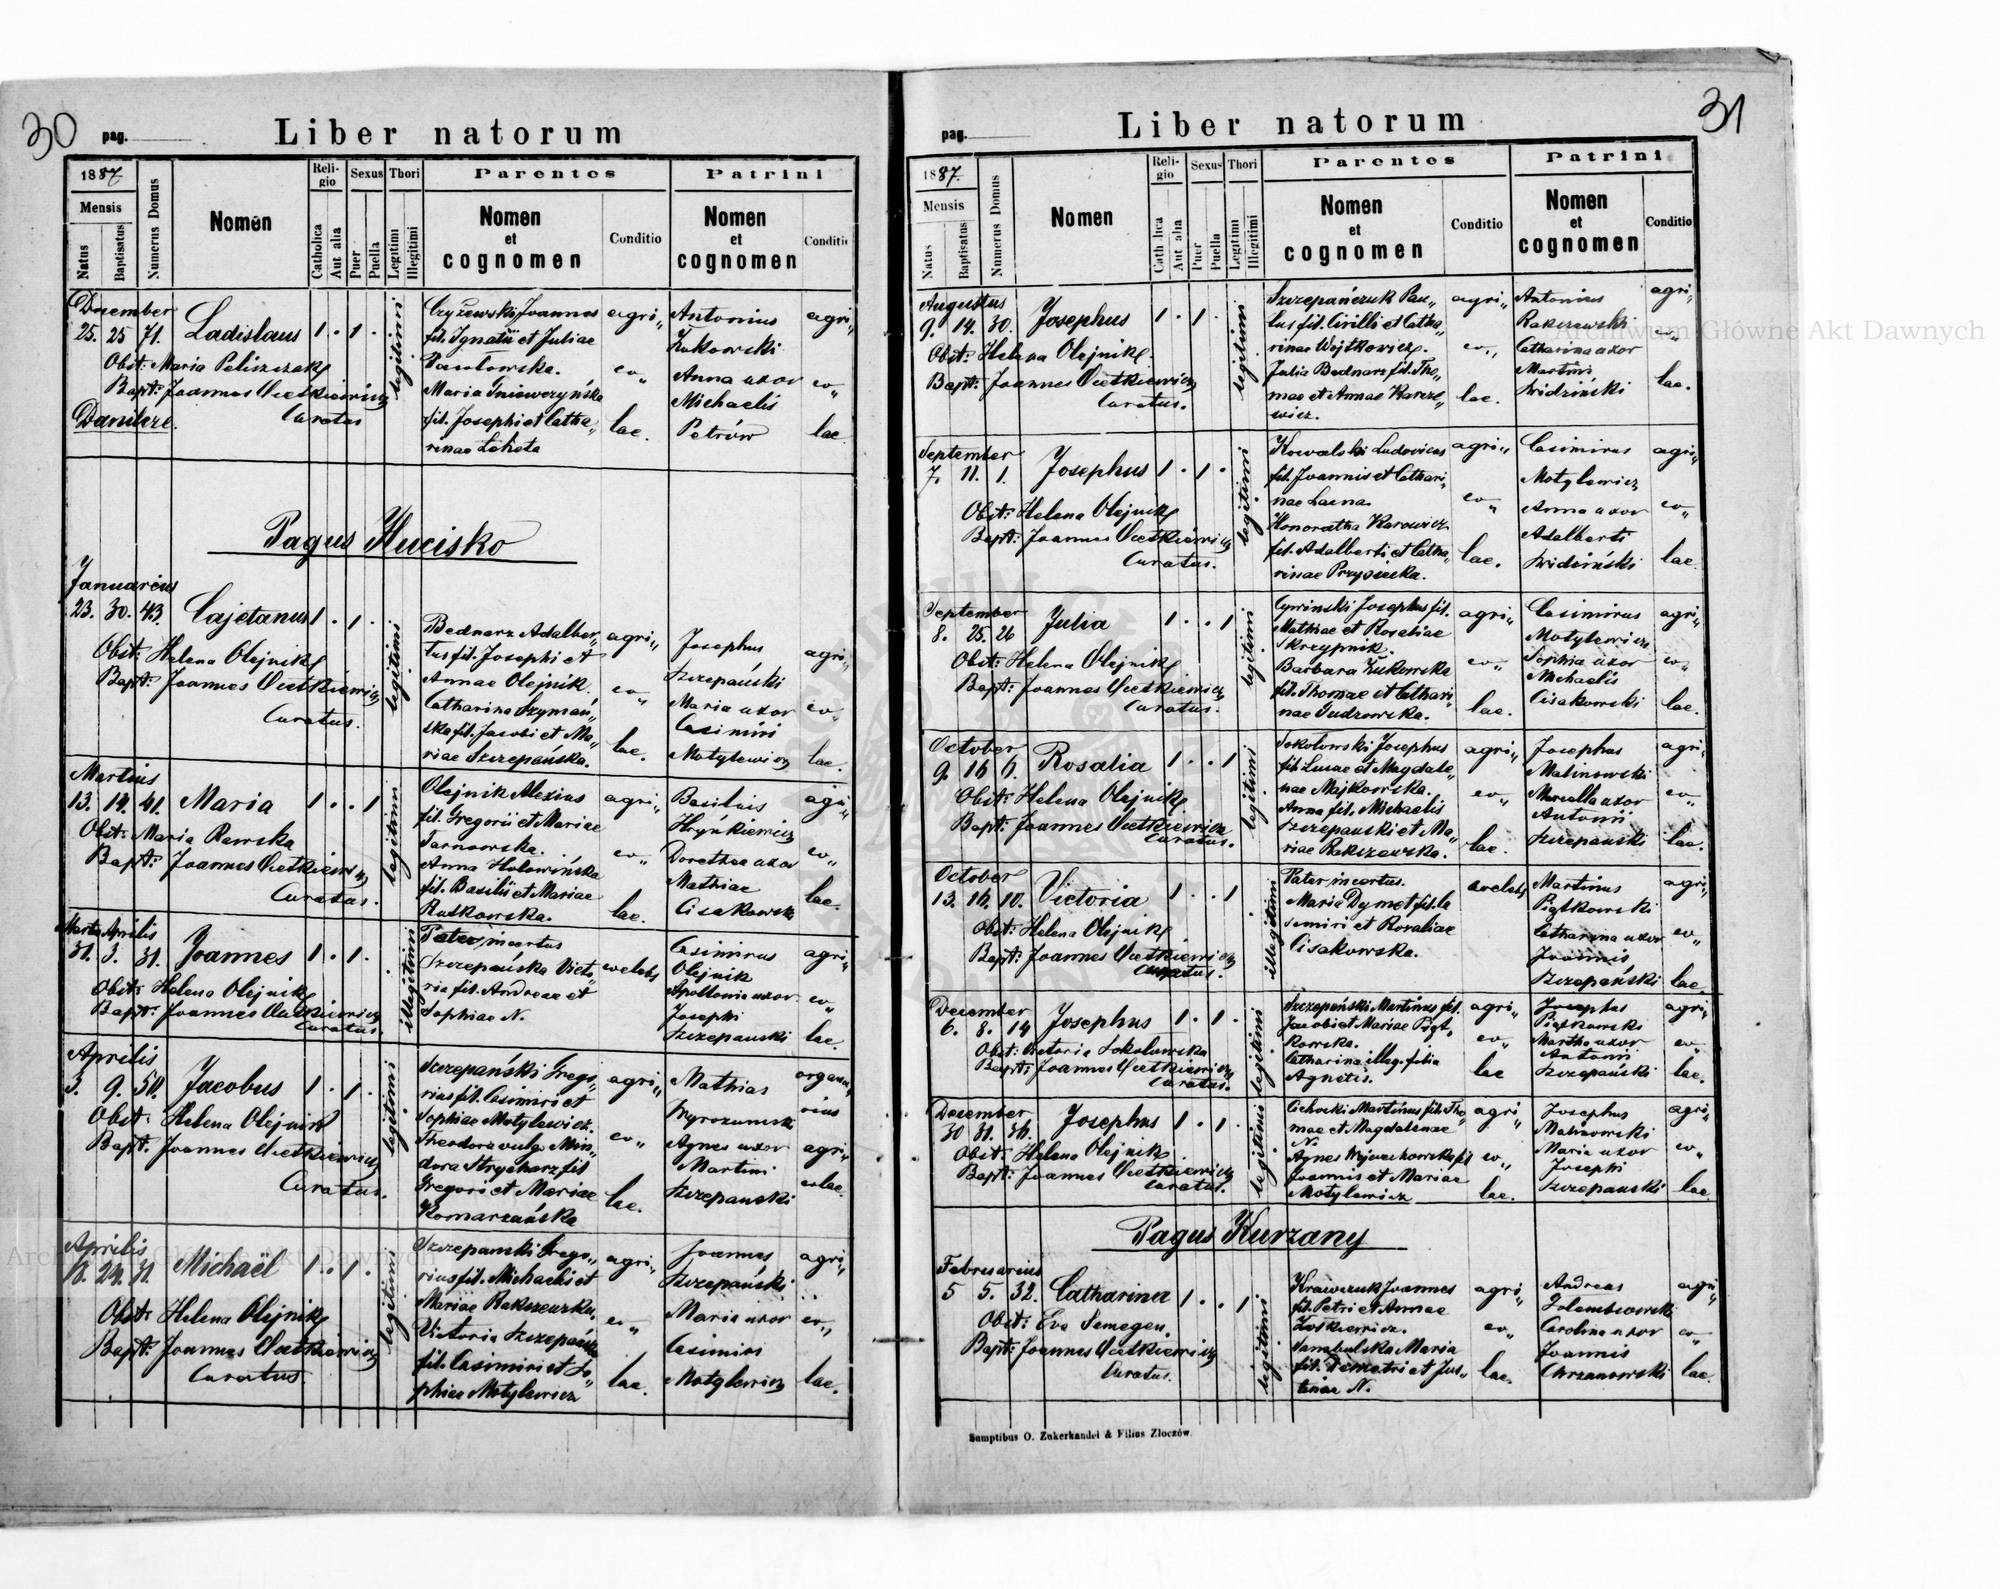 30 pag. Liber natorum
1887
Mensis
Natus
Baptisatus
Numerus Domus
Nomen
Religio
Catholica
Aut alia
Sexus
Puer
Puella
Thori
Legitimi
Illegitimi
Parentes
Nomen
et
cognomen
Conditio
Patrini
Nomen
et
cognomen
Conditio
December
25. 25 71. Ladislaus 1 . 1 .
Obst: Maria
Bapt: Joannes
Curatus
legitimi
Czyżewski Joannes
fil. Ignatii et Juliae
Maria
fil. Josephi et Catha„
rinae
agri„
co„
lae.
Antonius
Żukowski
Anna uxor
Michaelis
Petrów
agri„
co„
lae.
Pagus Hucisko
Januarius
23. 30. 43. Cajetanus 1 . 1 .
Obst: Helena Olejnik
Bapt: Joannes
Curatus.
legitimi
Bednarz Adalber„
tus fil. Josephi et
Annae Olejnik.
Catharina Szymań„
ska fil. Jacobi et Ma„
riae Szczepańska.
agri„
co„
lae.
Josephus
Szczepański
Maria uxor
Casimiri
Motylewicz
agri„
co„
lae.
Martius
13. 14. 41. Maria 1 . . 1
Obst: Maria Rawska
Bapt: Joannes
Curatus.
legitimi
Olejnik Alexius
fil. Gregorii et Mariae
Tarnowska.
Anna Hołowińska
fil. Basilii et Mariae
Rutkowska.
agri„
co„
lae.
Basilius
Hryńkiewicz
Dorothea uxor
Mathiae
agri„
co„
lae.
Aprilis
31. 3. 31. Joannes 1 . 1 .
Obst: Helena Olejnik
Bapt: Joannes
Curatus.
illegitimi
Pater incertus
Szczepańska Victo„
ria fil. Andreae et
Sophiae N.
Casimirus
Olejnik
Apollonia uxor
Josephi
Szczepanski
agri„
co„
lae.
Aprilis
3. 9. 50. Jacobus 1 . 1 .
Obst: Helena Olejnik
Bapt: Joannes
Curatus.
legitimi
Szczepański Grego„
rius fil. Casimiri et
Sophiae Motylewicz.
Theodora vulgo Min„
dora Strycharz fil
Gregorii et Mariae
Komarzańska
agri„
co„
lae.
Mathias
Agnes uxor
Martini
Szczepanski
organa„
rius
agri„
colae.
Aprilis
24. 31. Michaël 1 . 1 .
Obst: Helena Olejnik
Bapt: Joannes
Curatus.
legitimi
Szczepanski Grego„
rius fil. Michaelis et
Mariae
Victoria Szczepańska
fil. Casimiri et So„
phiae Motylewicz
agri„
co„
lae.
Joannes
Szczepański
Maria uxor
Casimiri
Motylewicz
agri„
co„
lae.
31
pag. Liber natorum
1887.
Mensis
Natus
Baptisatus
Numerus Domus
Nomen
Religio
Catholica
Aut alia
Sexus
Puer
Puella
Thori
Legitimi
Illegitimi
Parentes
Nomen
et
cognomen
Conditio
Patrini
Nomen
et
cognomen
Conditio
Augustus
9. 14. 30. Josephus 1 . 1 .
Obst: Helena Olejnik.
Bapt: Joannes
Curatus.
legitimi
Szczepańczuk Pau„
lus fil. Cirilli et Catha„
rinae Wojtkowicz.
Julia Bednarz fil. Tho„
mae et Annae Karcze„
wicz.
agri„
co„
lae.
Antonius
Rakszewski
Catharina uxor
Martini
agri„
co„
lae.
September
7. 11. 1. Josephus 1 . 1 .
Obst: Helena Olejnik
Bapt: Joannes
Curatus.
legitimi
Kowalski Ludovicus
fil. Joannis et Cathari„
nae
Honoratha Karowicz
fil. Adalberti et Catha„
rinae
agri„
co„
lae.
Casimirus
Motylewicz
Anna uxor
Adalberti
agri„
co„
lae.
September
8. 25. 26 Julia 1 . . 1
Obst: Helena Olejnik
Bapt: Joannes
Curatus.
legitimi
Cywinski Josephus fil.
Mathiae et Rosaliae
Skrzypnik.
Barbara Żukowska
fil. Thomae et Cathari„
nae
agri„
co„
lae.
Casimirus
Motylewicz
Sophia uxor
Michaelis
Cisakowski
agri„
co„
lae.
October
9. 16 6. Rosalia 1 . . 1
Obst: Helena Olejnik
Bapt: Joannes
Curatus.
legitimi
Sokołowski Josephus
fil. Lucae et Magdale„
nae Majkowska.
Anna fil. Michaelis
Szczepanski et Ma„
riae Rakszewska.
agri„
co„
lae.
Josephus
Malinowski
uxor
Antonii
Szczepanski
agri„
co„
lae.
October
13. 16. 10. Victoria 1 . . 1
Obst: Helena Olejnik
Bapt: Joannes
Curatus.
illegitimi
Pater incertus.
Maria Dymet fil. Ca
semiri et Rosaliae
Cisakowska.
Martinus
Piątkowski
Catharina uxor
Joannis
Szczepański
agri„
co„
lae.
December
6. 8. 14 Josephus 1 . 1 .
Obst: Victoria Sokołowska
Bapt: Joannes
Curatus.
legitimi
Szczepański Martinus fil.
Jacobi et Mariae Piąt„
kowska.
Catharina illeg. filia
Agnetis.
agri„
co„
lae
Josephus
Piątkowski
Martha uxor
Antonii
Szczepański
agri„
co„
lae.
December
30 31. 36. Josephus 1 . 1 .
Obst: Helena Olejnik.
Bapt: Joannes
Curatus.
legitimi
Cichocki Martinus fil. Tho„
mae et Magdalenae
N.
Agnes Wojciechowska fil
Joannis et Mariae
Motylewicz
agri„
co„
lae.
Josephus
Malinowski
Maria uxor
Josephi
Szczepanski
agri„
co„
lae
Pagus Kurzany
Februarius
5 5. 32. Catharina 1 . . 1
Obst: Eva Semegen.
Bapt: Joannes
Curatus.
legitimi
Krawczuk Joannes
fil. Petri et Annae
Maria
fil. Demetri et Jus„
tinae N.
agri„
co„
lae.
Andreas
Carolina uxor
Joannis
Chrzanowski
agri„
co„
lae.
Sumptibus O. Zukerkandel & Filius Złoczów.
Archiwum Główne Akt Dawnych
Archiwum Główne Akt Dawnych